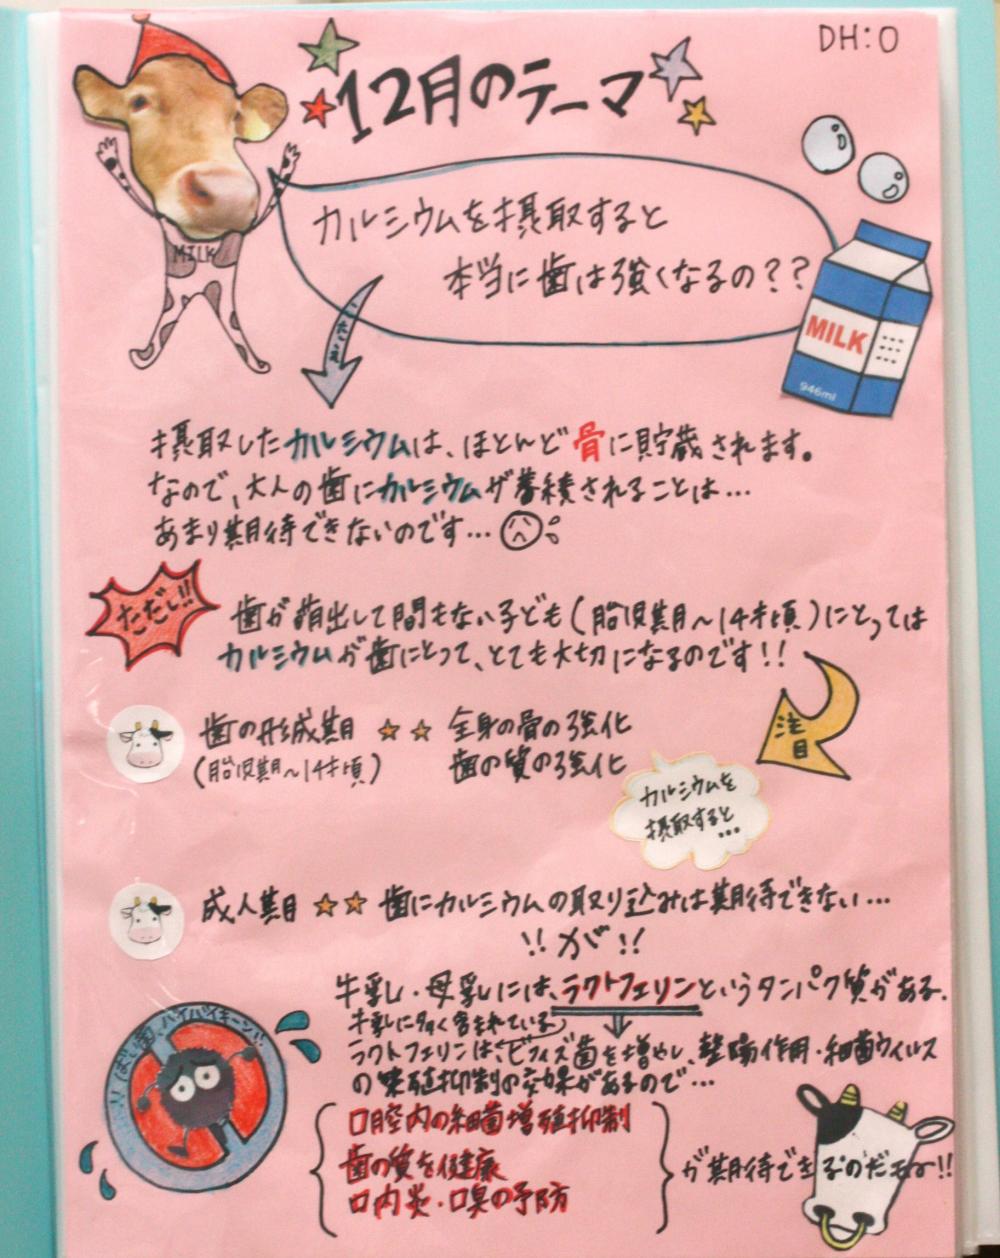 DH:O
12月のテーマ
MILK
カルシウムを摂取すると
本当に歯は強くなるの??
こたえ
MILK
946ml
摂取したカルシウムは、ほとんど骨に貯蔵されます。
なので、大人の歯にカルシウムが蓄積されることは…
あまり期待できないのです…
ただし!!
歯が萌出して間もない子ども(胎児期～14才頃)にとっては
カルシウムが歯にとって、とても大切になるのです!!
注目
歯の形成期 ☆☆ 全身の骨の強化
(胎児期～14才頃) 歯の質の強化
カルシウムを
摂取すると…
成人期 ☆☆ 歯にカルシウムの取り込みは期待できない…
!!が!!
牛乳・母乳には、ラクトフェリンというタンパク質がある.
牛乳に多く含まれている
ラクトフェリンは、ビフィズ菌を増やし、整腸作用・細菌ウィルス
の繁殖抑制の効果があるので…
ばい菌、バイバイキーン!!
口腔内の細菌増殖抑制
歯の質を健康
口内炎・口臭の予防
が期待できるのだモ〜!!